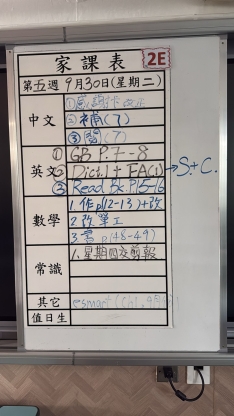 家課表 2E
第五週 9月30日(星期二)
中文
①感謝卡改正
②補(7)
③閱(7)
英文
① GB P.7-8
② Dict.1 + FA(1) → S.+C.
③ Read Bk P.15-16
數學
1.作p(12-13)+改
2.改單工
3.書p(48-49)
常識
1.星期四交剪報
其它
esmart (Chi,
值日生